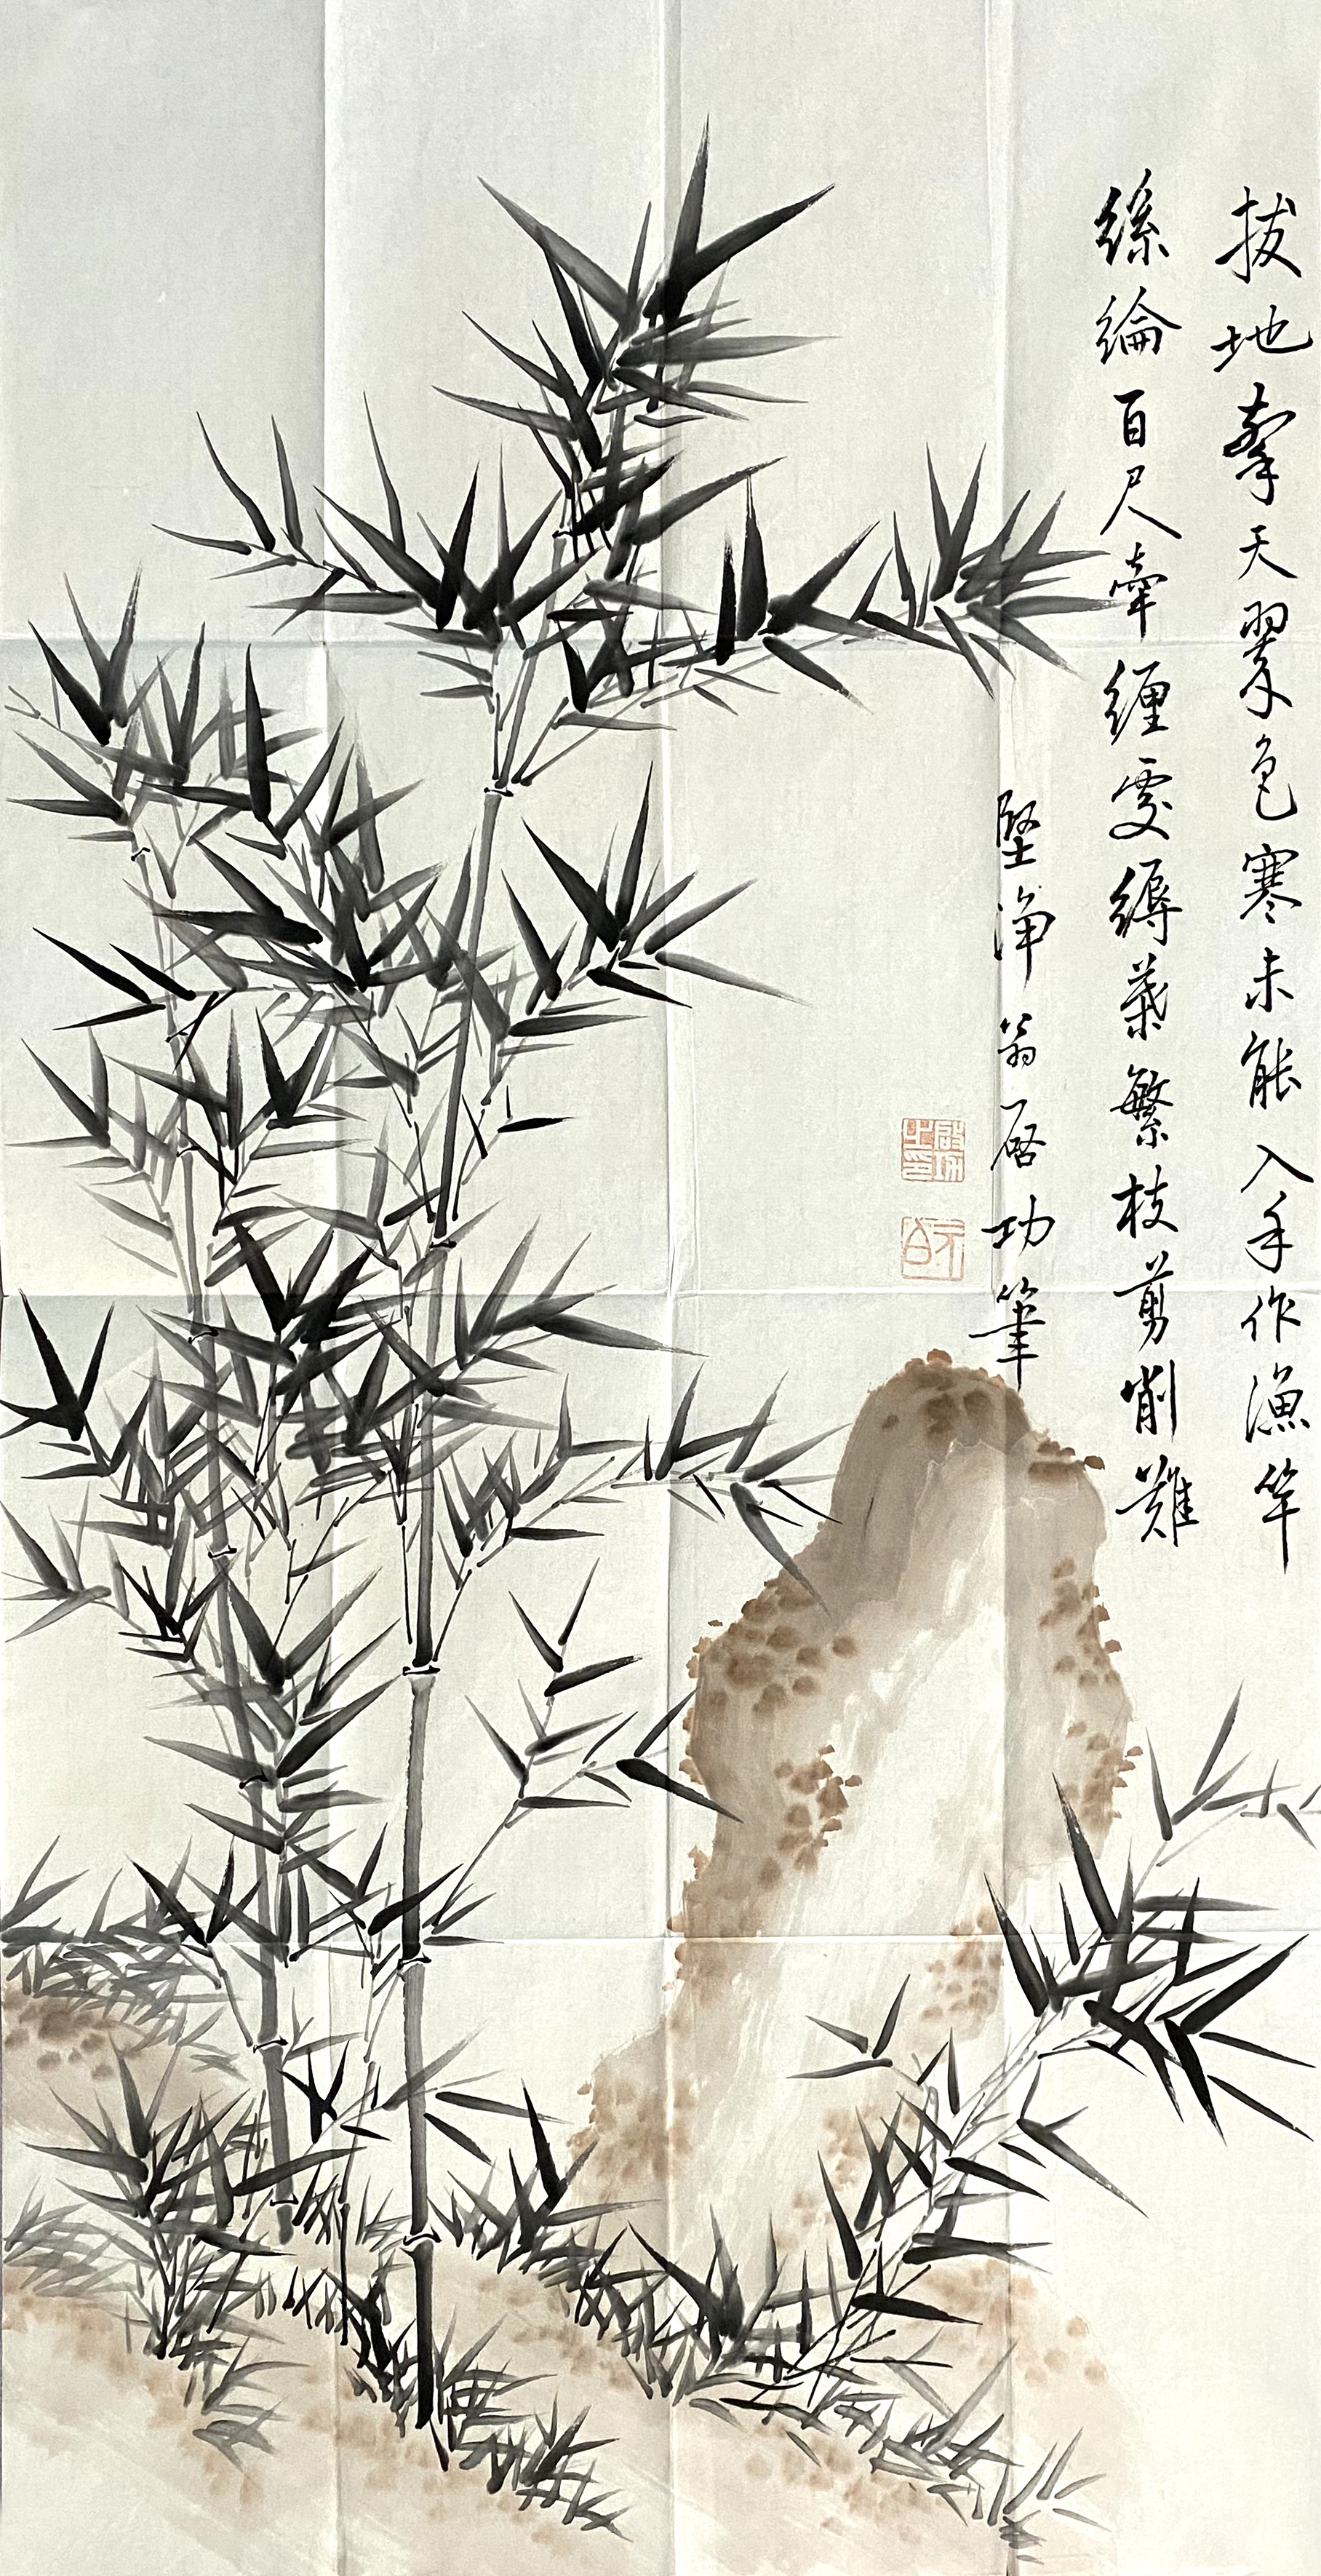 拔地拏天翠色寒未能入手作漁竿
絲綸百尺牽纏處縟葉繁枝剪削難
堅淨翁启功筆
啟功之印
元白